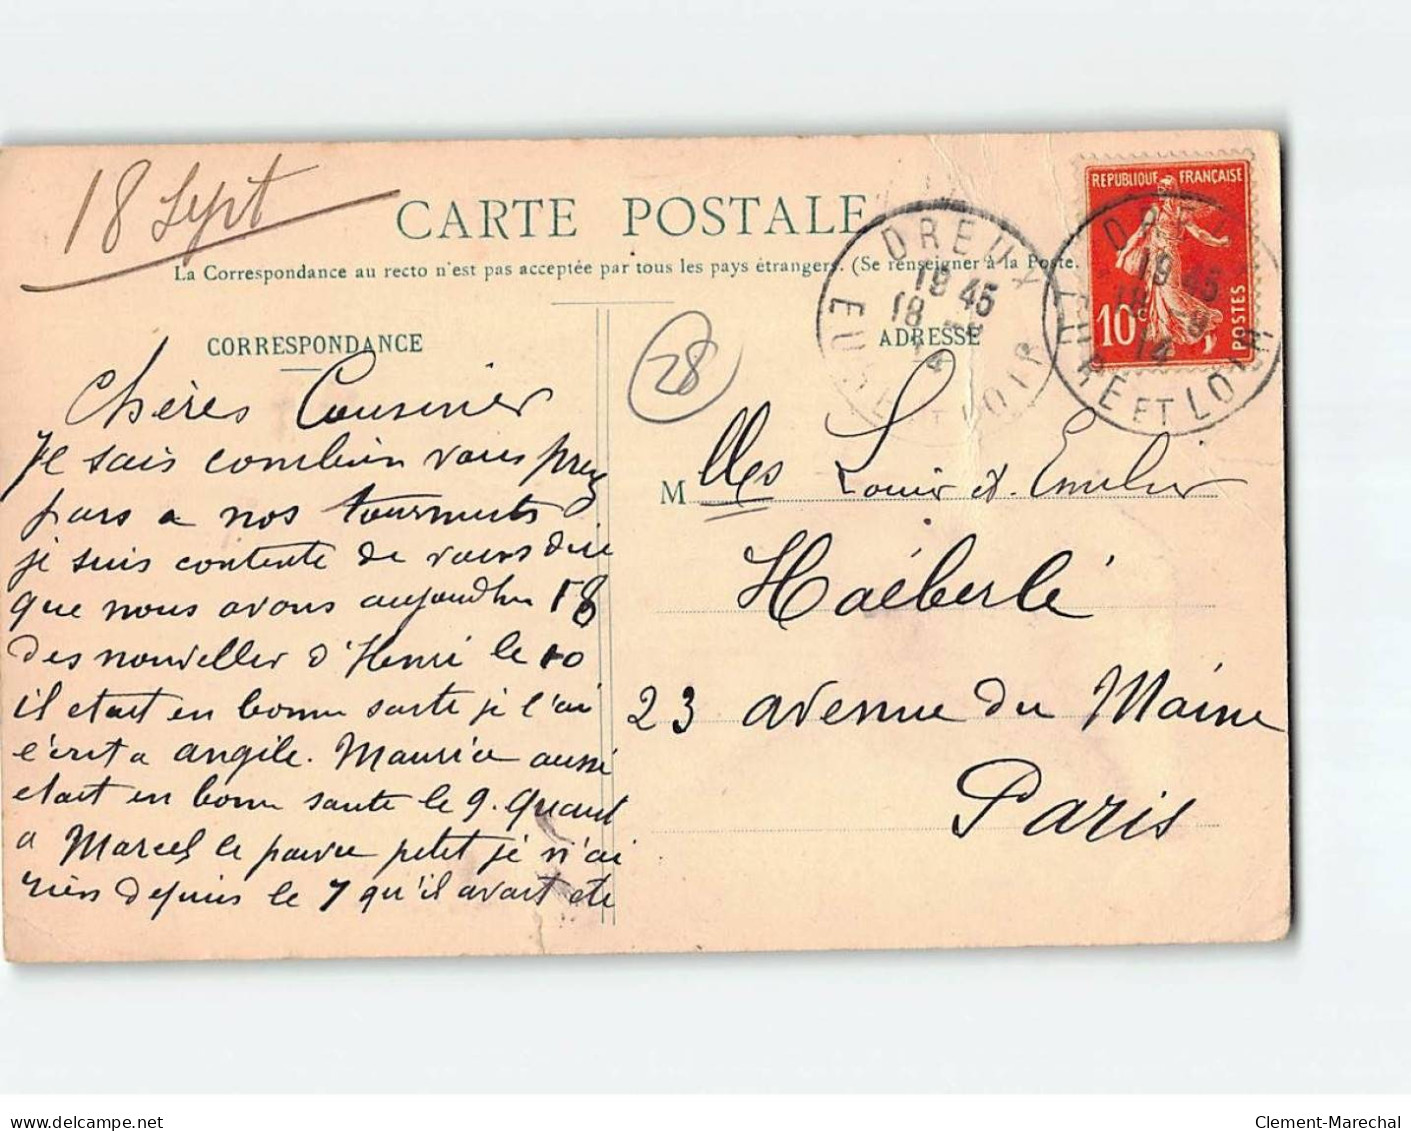 18 Sept
CARTE POSTALE
La Correspondance au recto n'est pas acceptée par tous les pays étrangers. (Se renseigner à la Poste.
CORRESPONDANCE
ADRESSE
28
REPUBLIQUE FRANÇAISE
10c
POSTES
DREUX
19 45
18 -9
14
EURE ET LOIR
DREUX
19 45
18 -9
14
EURE ET LOIR
Chères Cousines
Je sais combien vous prenez
pars a nos tourments
je suis contente de vous dire
que nous avons aujourdhui 18
des nouvelles d'Henri le 10
il etait en bonne santé je l'ai
écrit a angèle. Maurice aussi
etait en bonne sante le 9. Quant
a Marcel le pauvre petit je n'ai
rien depuis le 7 qu'il avait ete
Mlles Louise et Emilie
Haéberlé
23 avenue du Maine
Paris
delcampe.net
Clement-Marechal